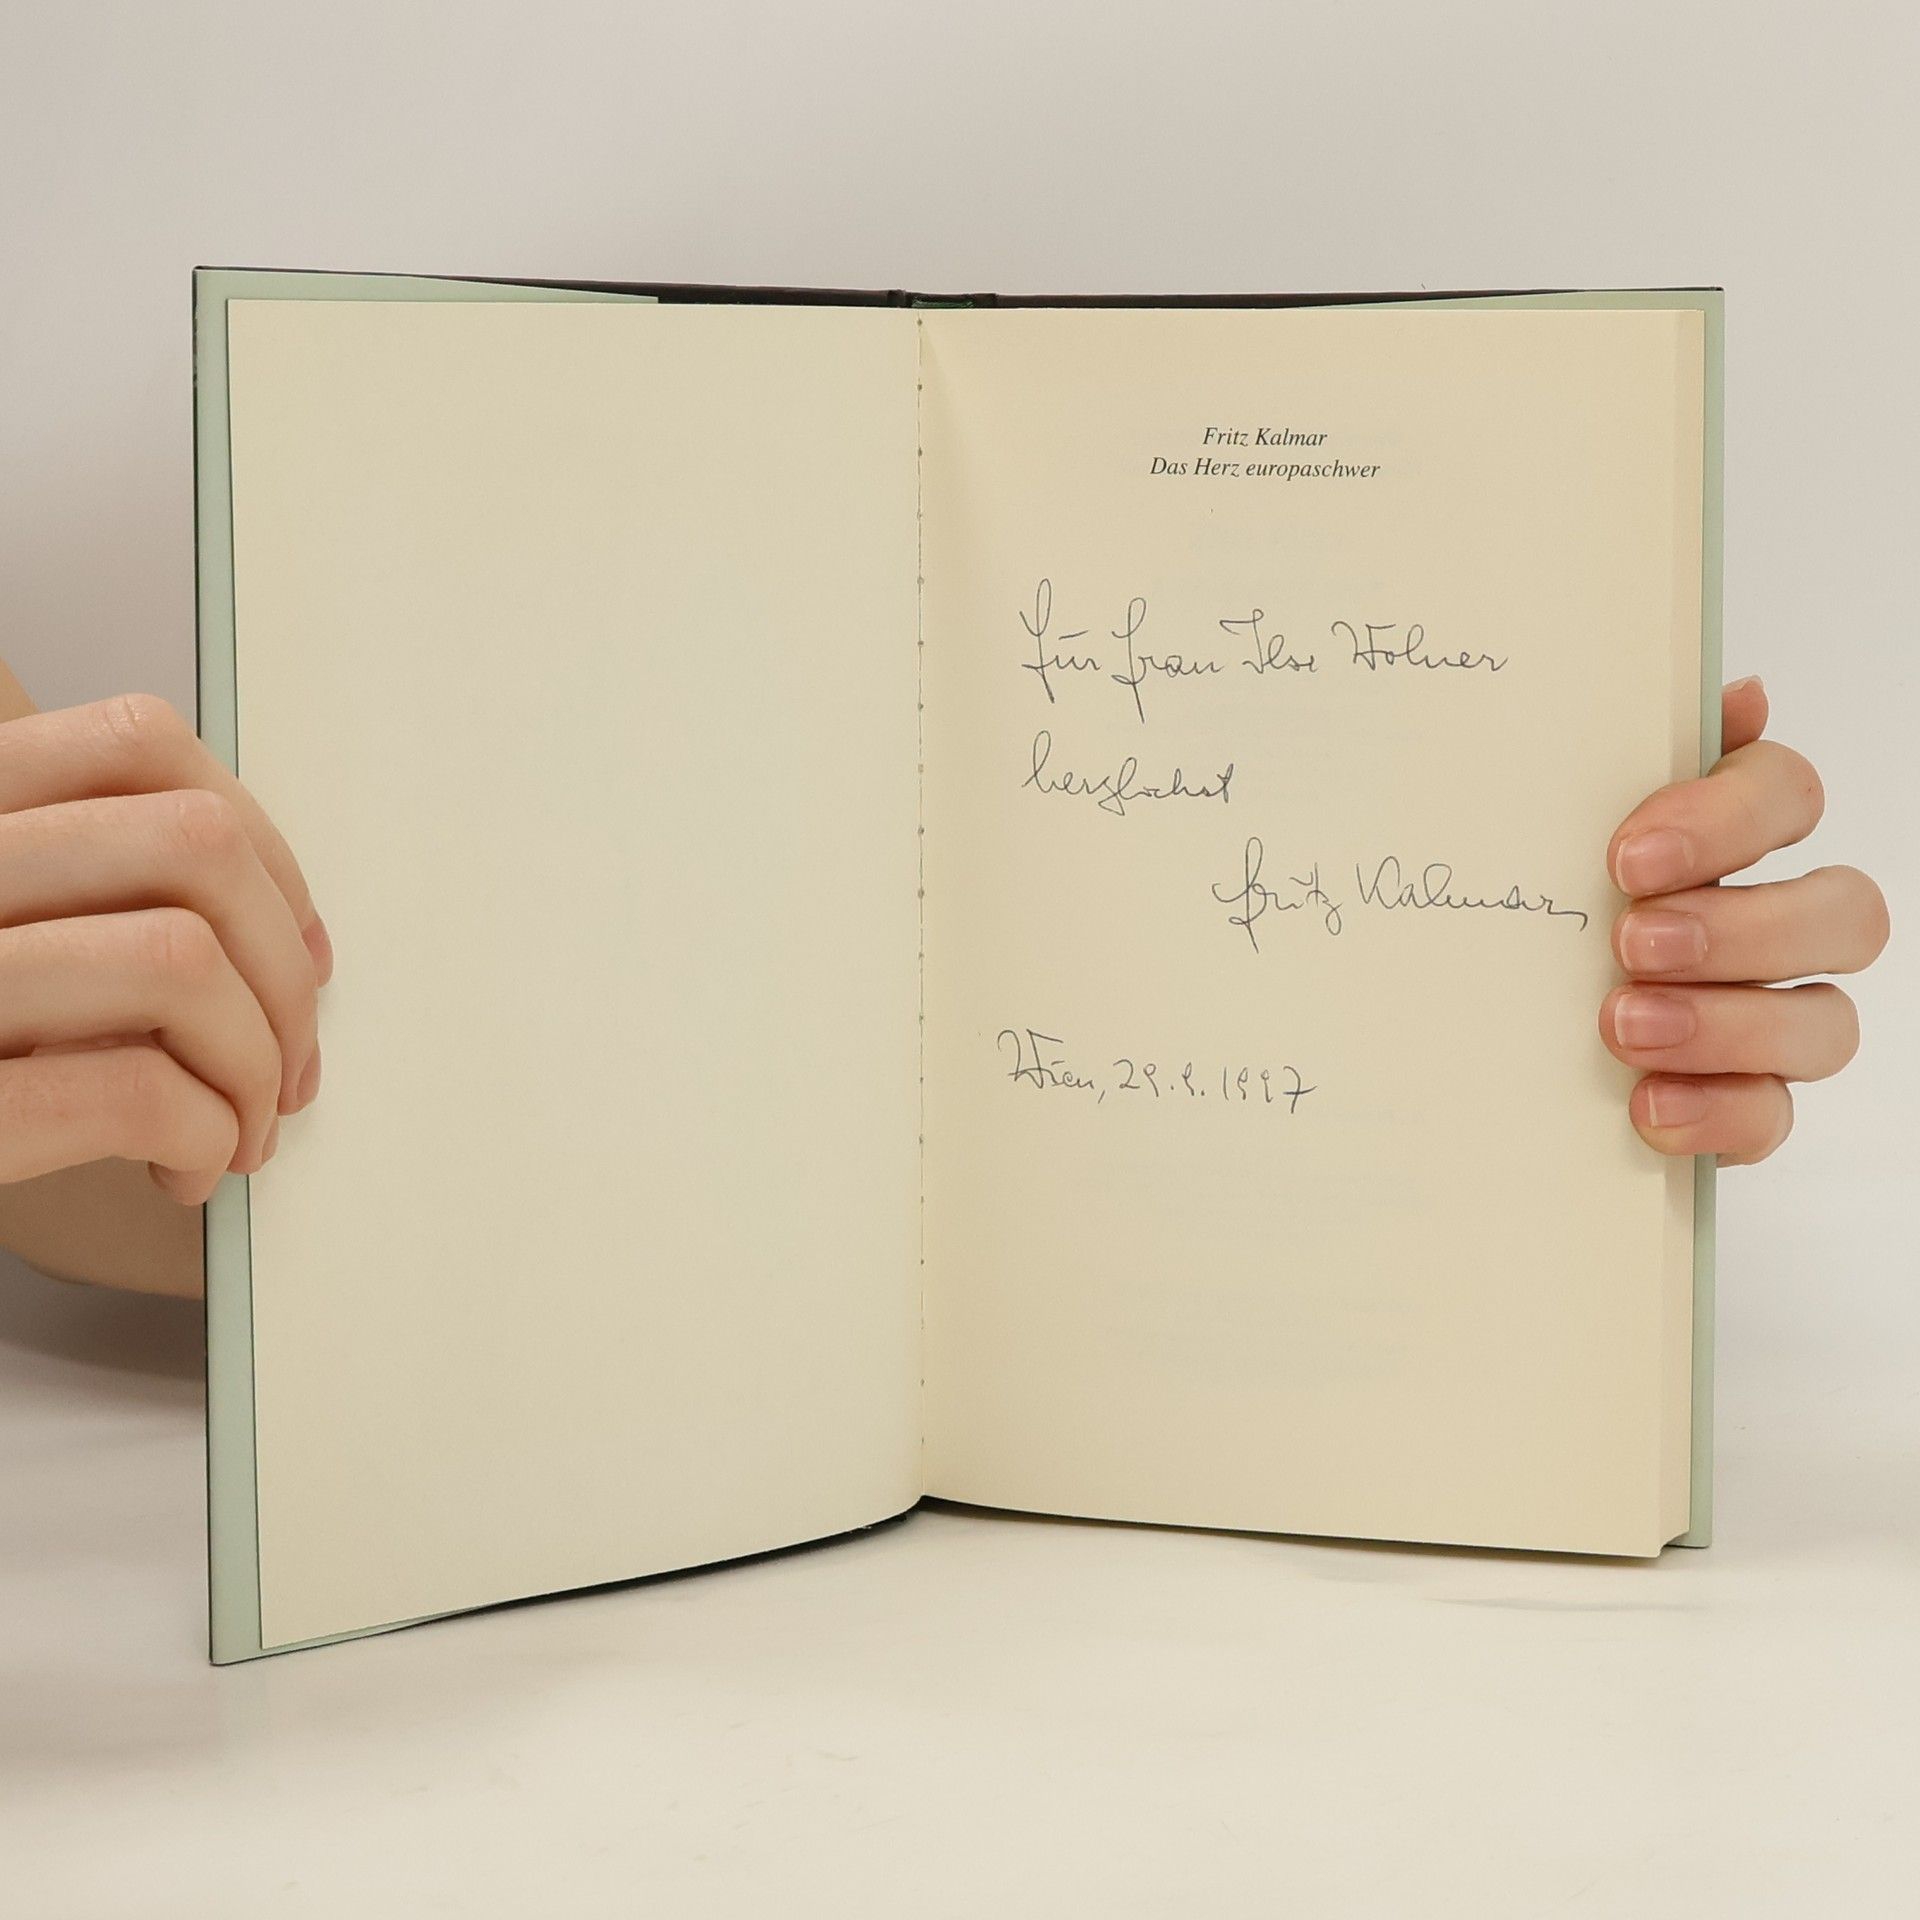 Fritz Kalmar
Das Herz europaschwer
Für Frau Ilse Wolner
herzlichst
Fritz Kalmar
Wien, 29.9.1997